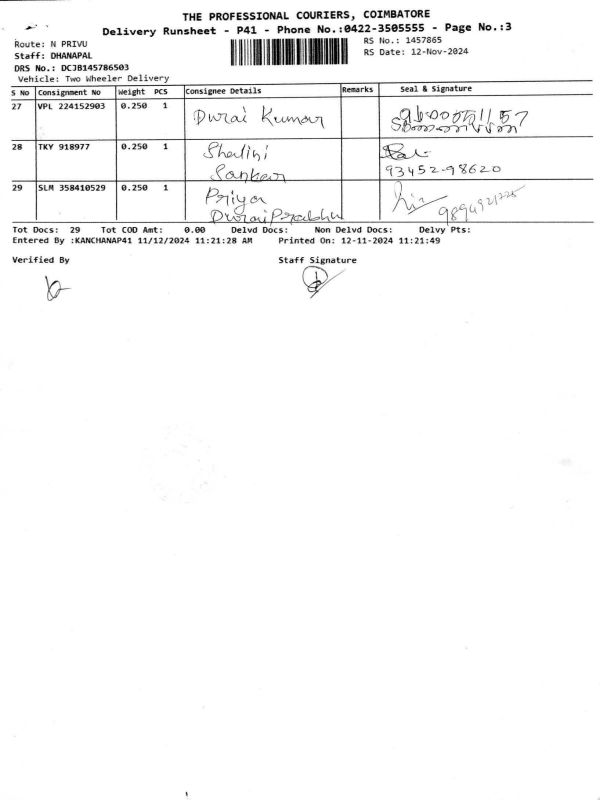 THE PROFESSIONAL COURIERS, COIMBATORE
Delivery Runsheet - P41 - Phone No.:0422-3505555 - Page No.:3
Route: N PRIVU
RS No.: 1457865
Staff: DHANAPAL
RS Date: 12-Nov-2024
DRS No.: DCJB145786503
Vehicle: Two Wheeler Delivery
S No Consignment No Weight PCS Consignee Details Remarks Seal & Signature
27 VPL 224152903 0.250 1 Durai Kumar
28 TKY 918977 0.250 1 Shalini
Sankar 93452-98620
29 SLM 358410529 0.250 1 Priya
Durai Prabhu
Tot Docs: 29 Tot COD Amt: 0.00 Delvd Docs: Non Delvd Docs: Delvy Pts:
Entered By :KANCHANAP41 11/12/2024 11:21:28 AM Printed On: 12-11-2024 11:21:49
Verified By Staff Signature